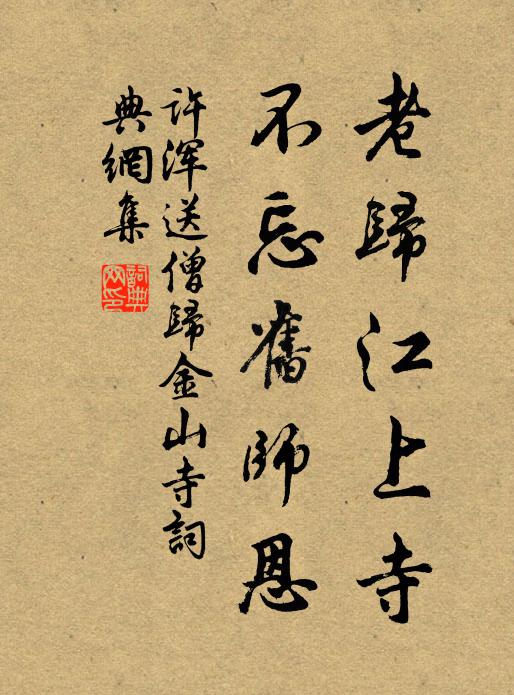 老歸江上寺
不忘舊師恩
许渾送僧歸金山寺詞
典網集
詞典
网印